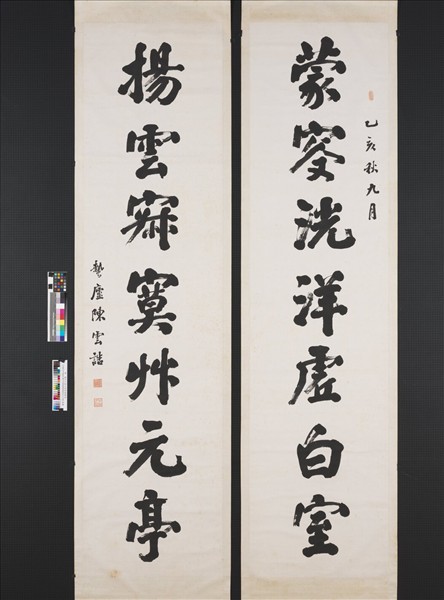 乙亥秋九月
蒙叜洸洋虛白室
揚雲寂寞艸元亭
蟄廬陳雲誥